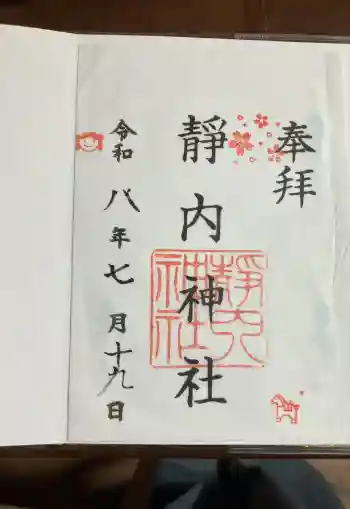 奉拝
靜内神社
靜内神社
令和八年七月十九日